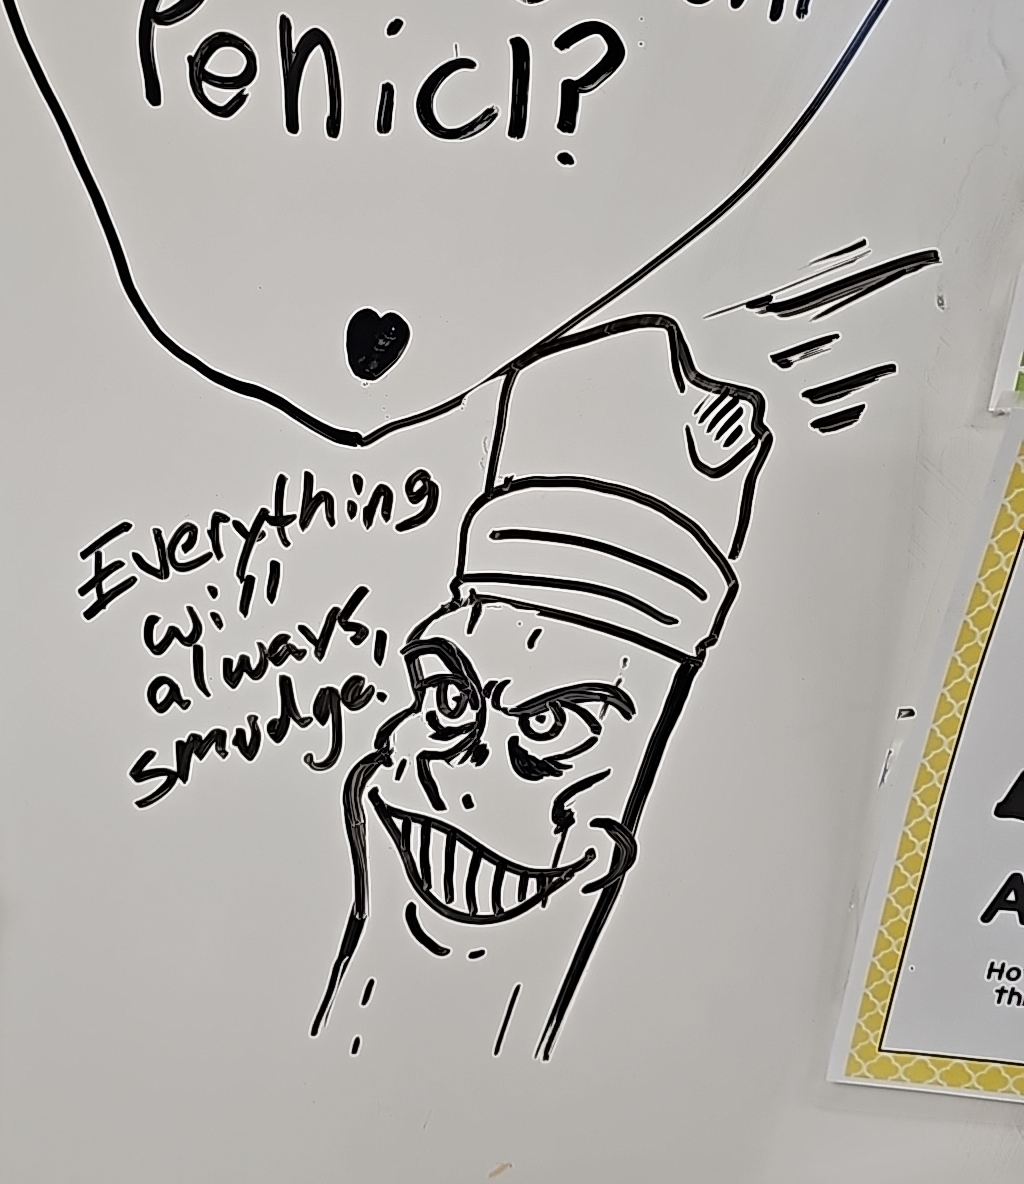 Penicl?
Everything
will
always,
smudge.